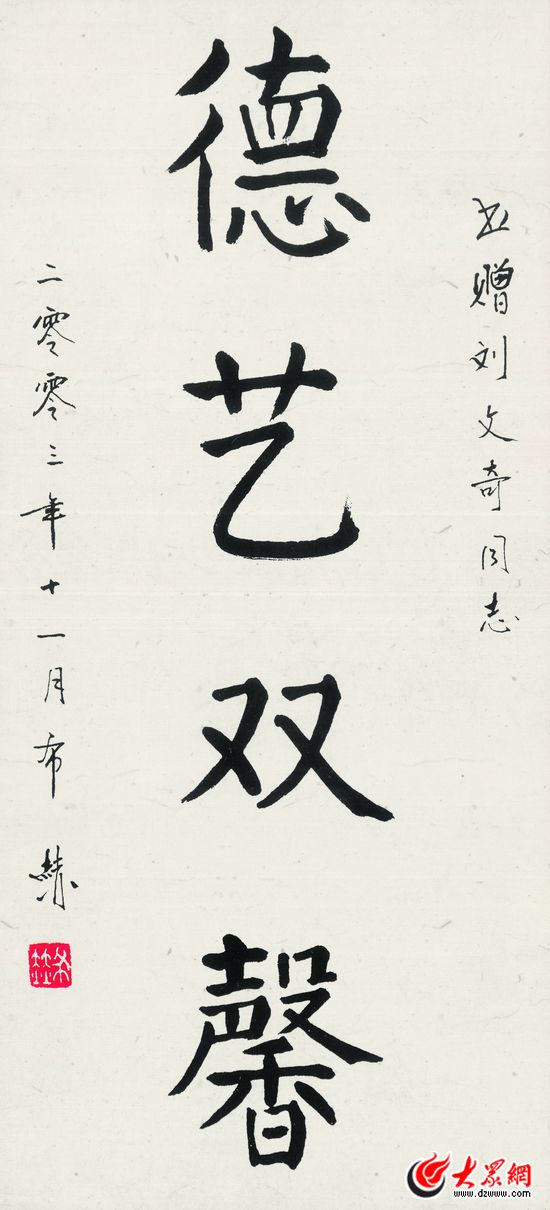 书赠刘文奇同志
德艺双馨
二零零三年十一月布赫
布赫
大眾網
www.dzwww.com